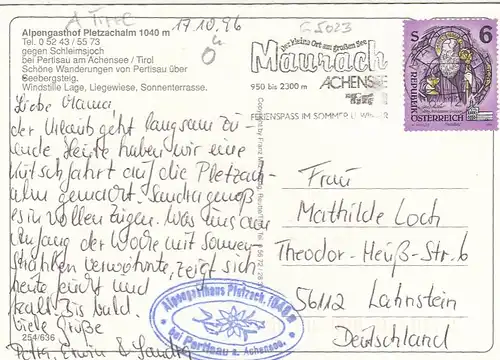 A Tirol
17.10.96
G 5023
Alpengasthof Pletzachalm 1040 m
Tel. 0 52 43 / 55 73
gegen Schleimsjoch
bei Pertisau am Achensee / Tirol
Schöne Wanderungen von Pertisau über
Seebergsteig.
Windstille Lage, Liegewiese, Sonnenterrasse.
Liebe Mama
der Urlaub geht langsam zu
Ende. Heute haben wir eine
Kutschfahrt auf die Pletzach-
alm gemacht. Sandra genoß
es in vollen Zügen. Was uns am
Anfang der Woche mit Sonnen-
strahlen verwöhnte, zeigt sich
heute und
kalt. Bis bald.
Viele Grüße
Petra, Erwin & Sandra
254/636
Der kleine Ort am großen See
Maurach
950 bis 2300 m ACHENSEE
FERIENSPASS IM SOMMER U. WINTER
S 6
REPUBLIK
ÖSTERREICH
Frau
Mathilde Loch
Theodor-Heuß-Str. 6
56112 Lahnstein
Deutschland
Alpengasthaus Pletzach 1040 m
bei Pertisau a. Achensee